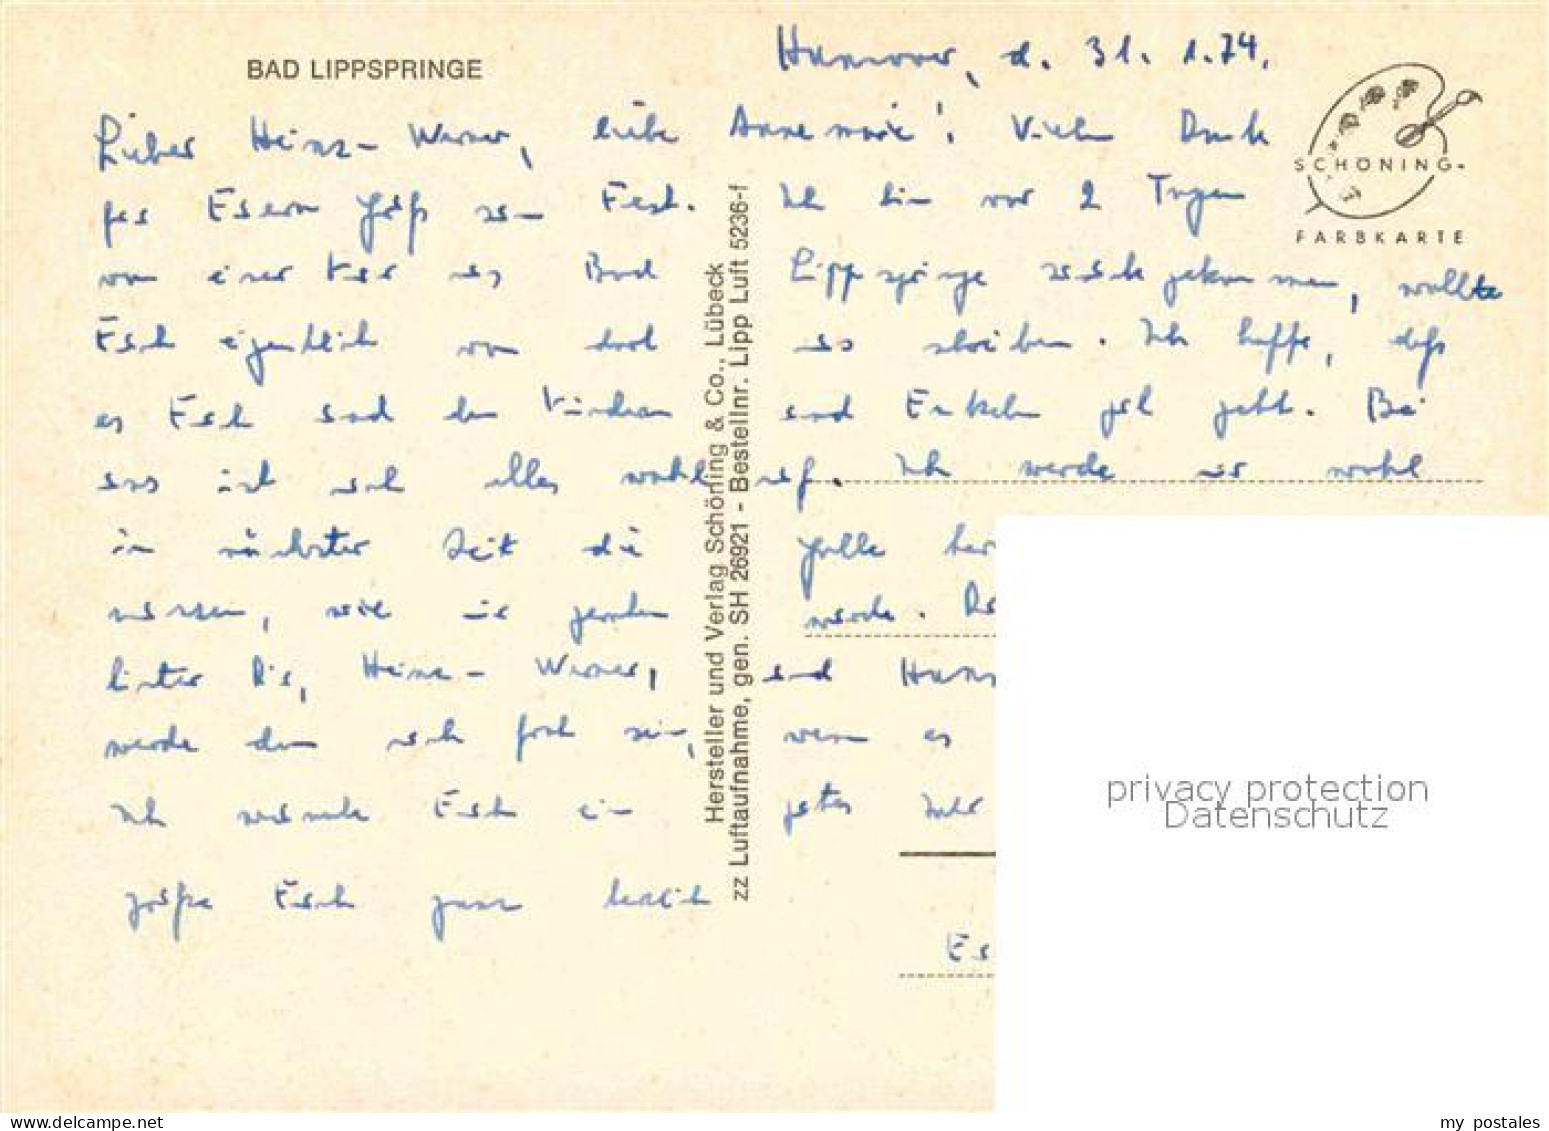 BAD LIPPSPRINGE
Hannover, d. 31. 1. 74.
Lieber Heinz-Werner, liebe Annemarie! Vielen Dank
für Euren Gruß zum Fest. Ich bin vor 2 Tagen
von einer Kur aus Bad Lippspringe zurückgekommen, wollte
Euch eigentlich von dort aus schreiben. Ich hoffe, daß
es Euch und den Kindern und Enkeln gut geht. Bei
uns ist auch alles wohl auf. Ich werde mir wohl
in nächster Zeit die Galle
müssen, wie mir geraten werde.
hinter Dir, Heinz-Werner, und
werde dann auch froh sein, wenn es
Ich wünsche Euch ein gutes Jahr
grüße Euch ganz herzlich
SCHÖNING-
FARBKARTE
Hersteller und Verlag Schöning & Co., Lübeck
zz Luftaufnahme, gen. SH 26921 - Bestellnr. Lipp Luft 5236-f
privacy protection
Datenschutz
my postales